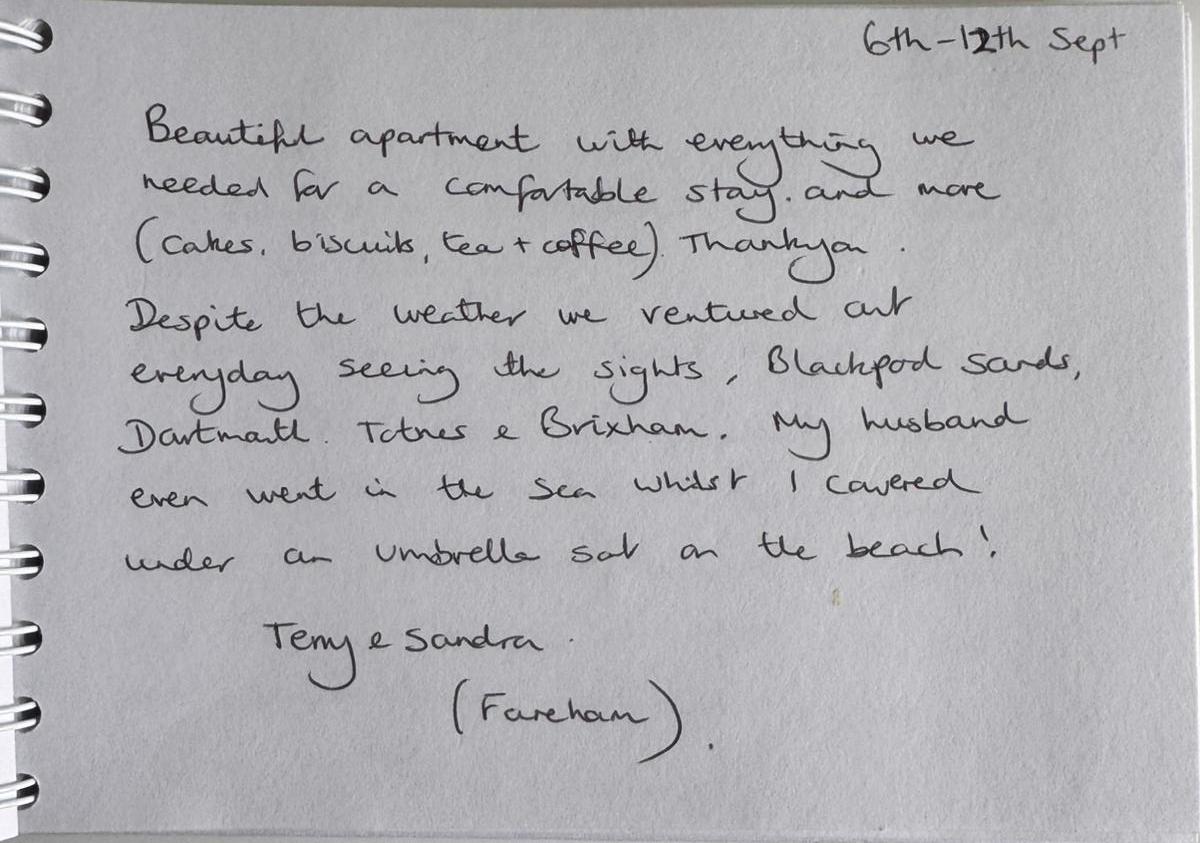 6th-12th Sept
Beautiful apartment with everything we
needed for a comfortable stay. and more
(cakes, biscuits, tea + coffee). Thankyou.
Despite the weather we ventured out
everyday seeing the sights, Blackpool sands,
Dartmouth. Totnes & Brixham. My husband
even went in the sea whilst I cowered
under an umbrella sat on the beach!
Terry & Sandra.
(Fareham).